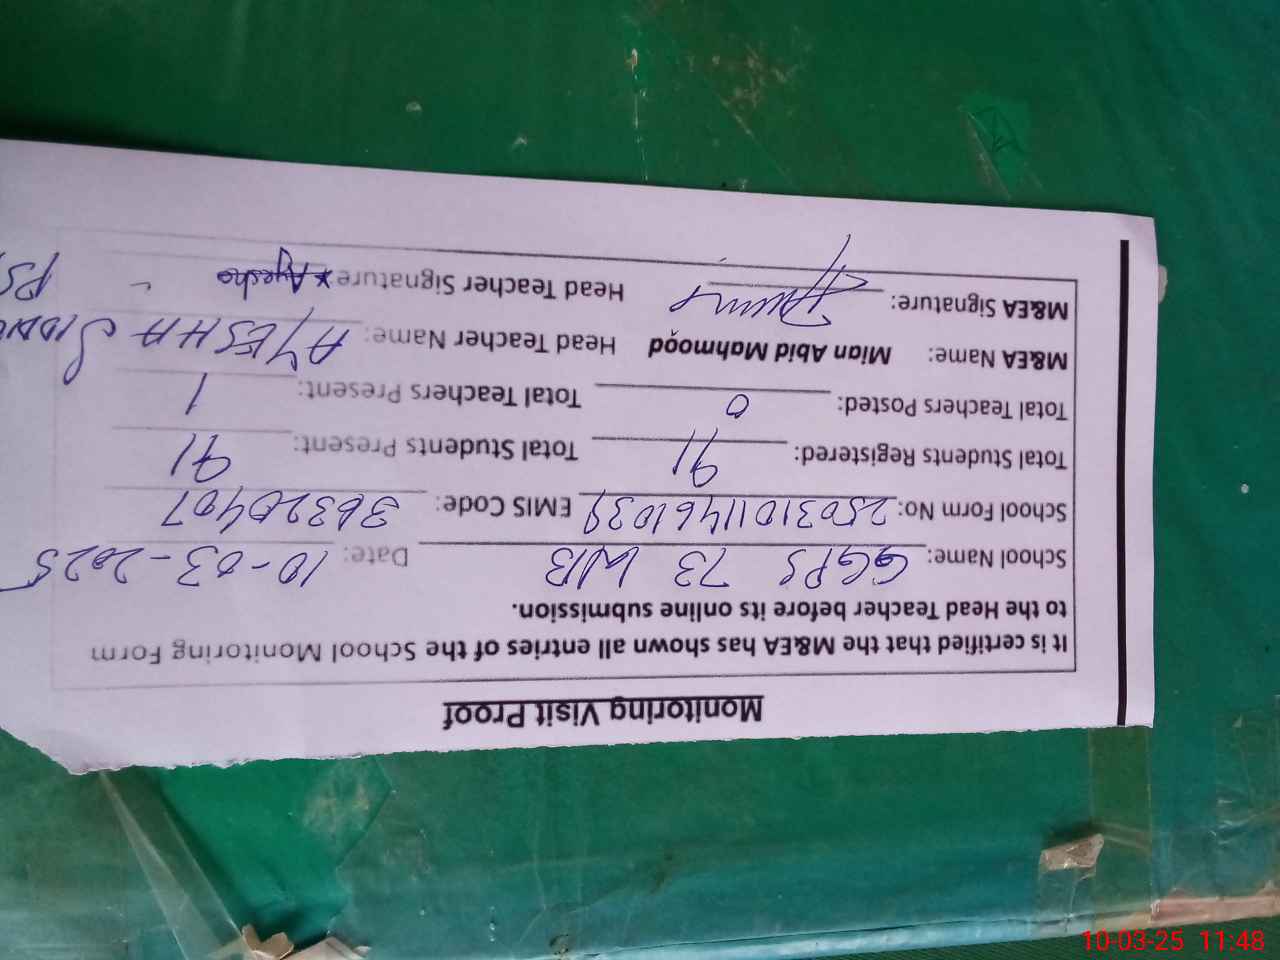 Monitoring Visit Proof
It is certified that the M&EA has shown all entries of the School Monitoring Form
to the Head Teacher before its online submission.
School Name: GGPS 73 WB Date: 10-03-2025
School Form No: 25031011461039 EMIS Code: 36320407
Total Students Registered: 91 Total Students Present: 91
Total Teachers Posted: 0 Total Teachers Present: 1
M&EA Name: Mian Abid Mahmood Head Teacher Name: AYESHA
M&EA Signature: Head Teacher Signature Ayesha
10-03-25 11:48